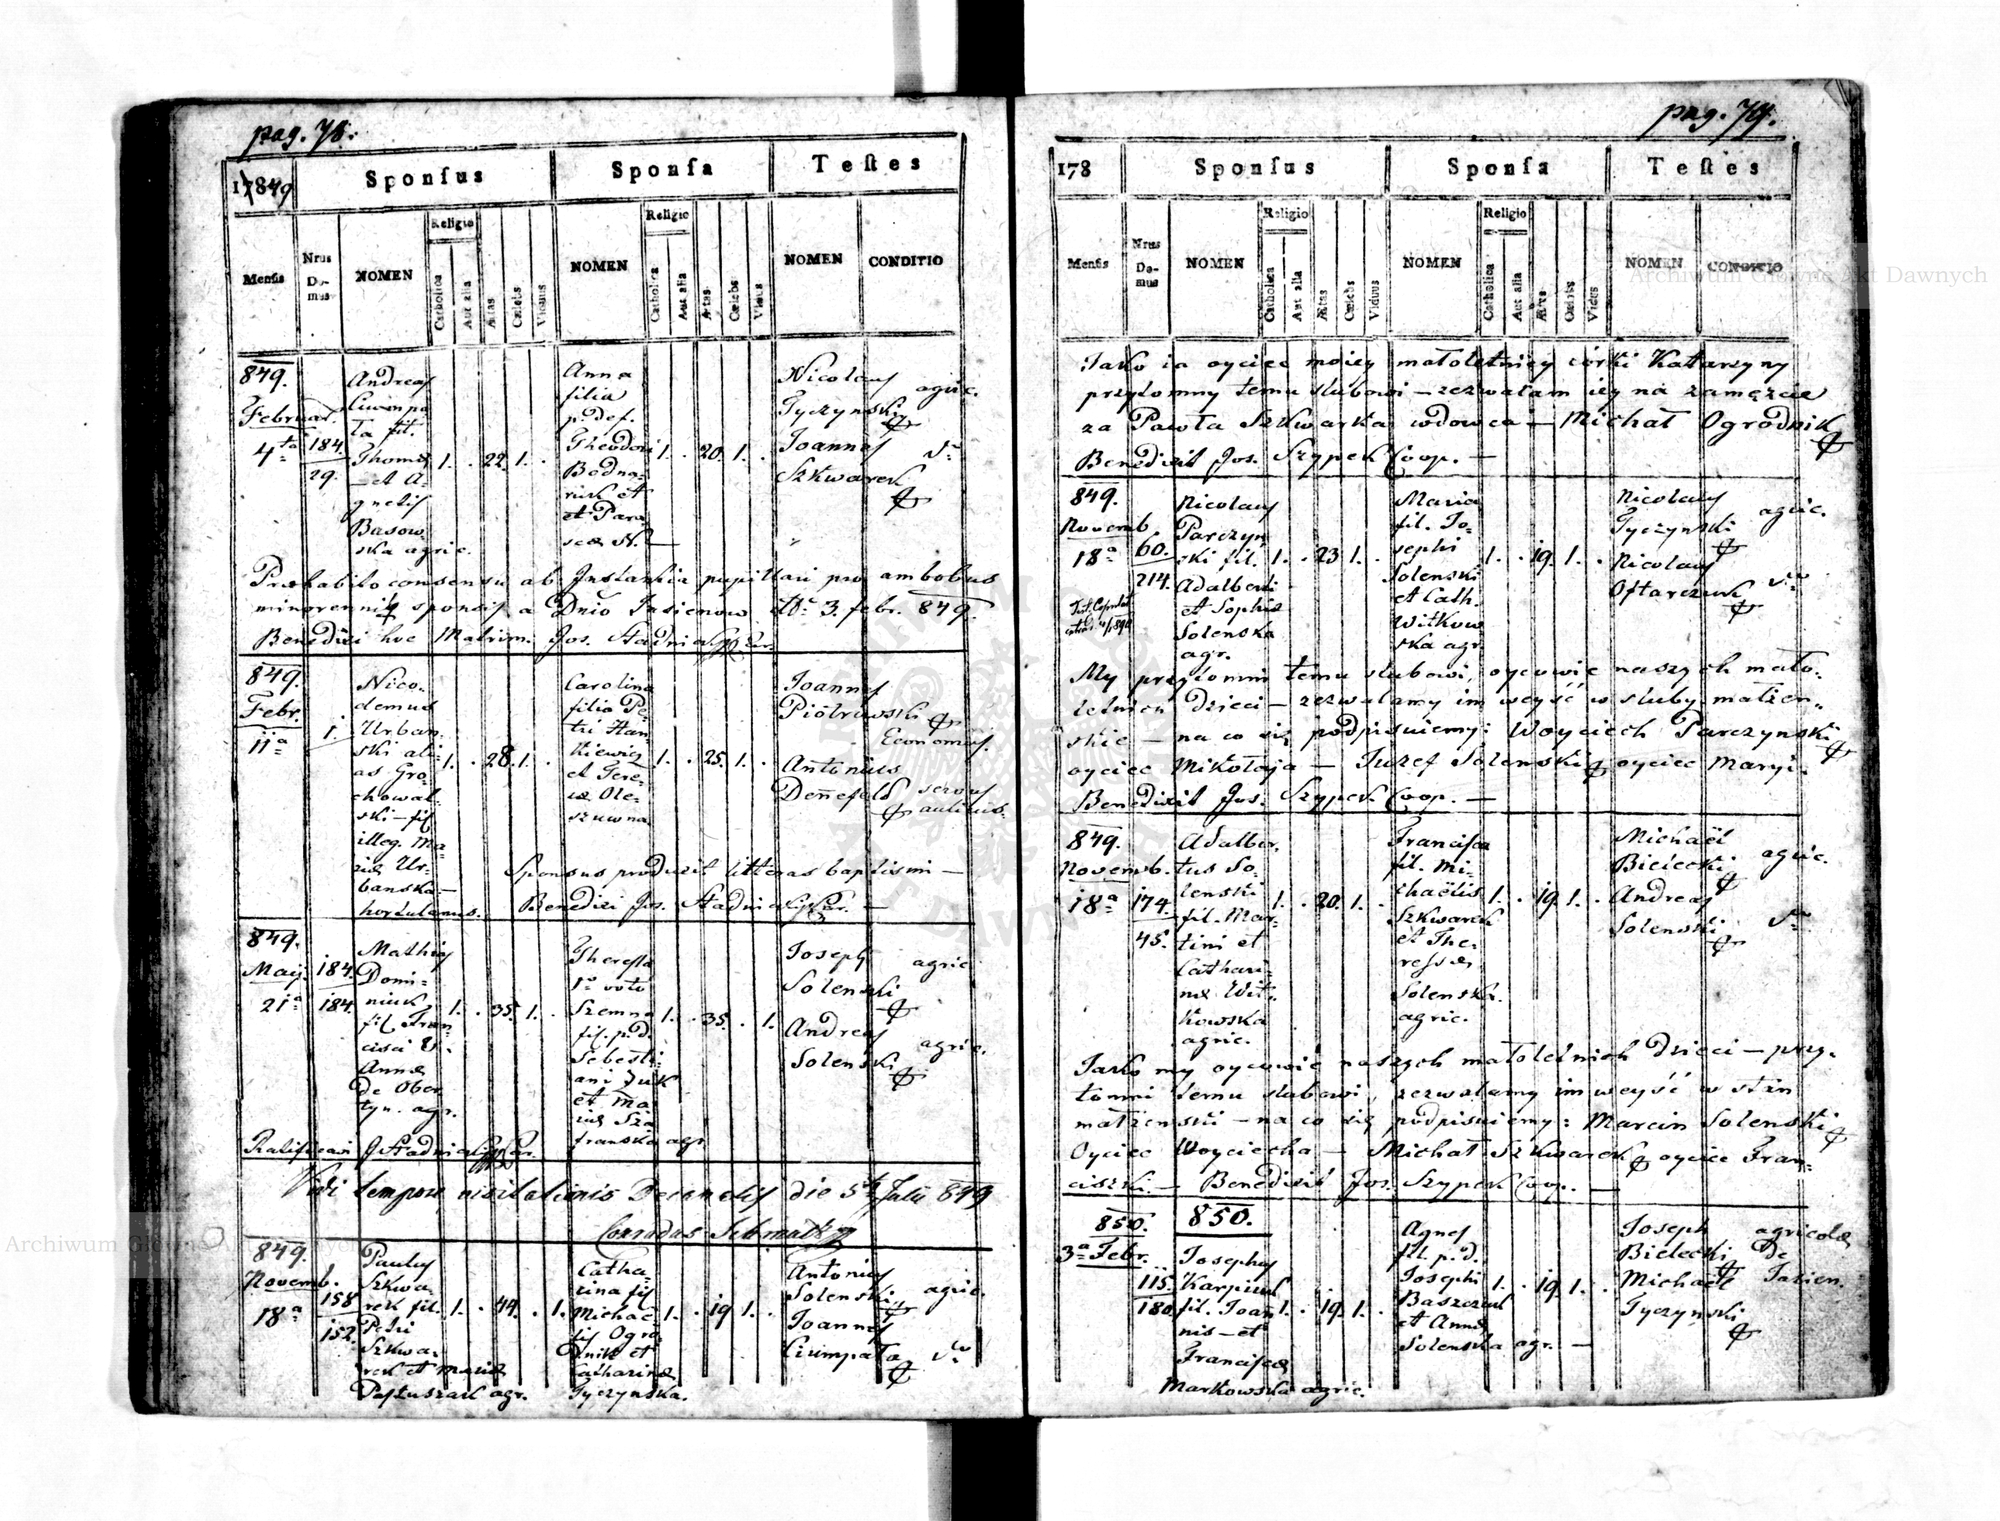 pag. 78.
17849
Sponſus
Sponſa
Teſtes
Menſis
Nrus Domus
NOMEN
Religio
Catholica
Aut alia
Ætas
Cœlebs
Viduus
NOMEN
Religio
Catholica
Aut alia
Ætas
Cœlebs
Vidua
NOMEN
CONDITIO
849.
Februar.
4ta
184.
29.
Andreas
Ciumpa
ta fil.
Thomæ
et A-
gnetis
Basow
ska agric.
1. . 22. 1. .
Anna
filia
p. def.
Theodori
Bodna-
riuk et
et Para
sceæ N. —
1. . 20. 1. .
Nicolaus
Tyczynski
agric.
Joannes
Szkwarek
Præhabito consensu ab Instantia pupillari pro ambobus
minorennib sponsis a Dnio Jasienow ddo 3. febr. 849.
Benedixi hoc Matrim. Jos. Stadnia
849.
Febr.
11a
1.
Nico-
demus
Urban
ski ali-
as Gro
chowal-
ski — fil
illeg. Ma-
riæ Ur-
banska —
hortulanus.
1. . 28. 1. .
Carolina
filia Pe-
tri Han
kiewicz
et There-
siæ Ole-
szuwna
1. . 25. 1. .
Joannes
Piotrowski
Economus.
Antonius
Denefeld
servus
aulicus.
Sponsus produxit litteras baptismi —
Benedixi Jos. Stadnia
849.
Maij.
21a
184.
184.
Mathias
Domi-
niuk
fil. Fran
cisci &
Annæ
de Ober
tyn. agr.
1. . 35. 1. .
Theressa
1o voto
Szemna
fil. p. d.
Sebesti-
ani Juk
et Ma
riæ Sza
franska agr.
1. . 35. . 1.
Joseph
Solenski
agric.
Andreas
Solenski
agric.
Ratificavi J. Stadnia
Vidi tempore visitationis Decanalis die 5ta Julii 849
Conradus
849.
Novemb.
18a
158
152.
Paulus
Szkwa-
rek fil.
Petri
Szkwa-
rek et Mariæ
Pastuszak agr.
1. . 44. . 1.
Catha-
rina fil
Michae
lis Ogro
dnik et
Catharinæ
Tyczynska.
1. . 19. 1. .
Antonius
Solenski
agric.
Joannes
Ciumpata
pag. 79.
178
Sponſus
Sponſa
Teſtes
Menſis
Nrus Domus
NOMEN
Religio
Catholica
Aut alia
Ætas
Cœlebs
Viduus
NOMEN
Religio
Catholica
Aut alia
Ætas
Cœlebs
Vidua
NOMEN
CONDITIO
Jako ia oyciec moiey małoletniey córki Katarzyny
przytomny temu slubowi — zezwalam iey na zamęzcie
za Pawła Szkwarka wdowca — Michał Ogrodnik
Benedixit Jos. Szypek Coop. —
849.
Novemb.
18a
60.
214.
Nicolaus
Parczyn
ski fil.
Adalberti
et Sophiæ
Solenska
agr.
1. . 23. 1. .
Maria
fil. Jo-
sephi
Solenski
et Cath.
Witkow
ska agr.
1. . 19. 1. .
Nicolaus
Tyczynski
agric.
Nicolaus
Oftarczuk
My przytomni temu slubowi, oycowie naszych mało-
letnich dzieci — zezwalamy im weyść w sluby małzen-
skie — na co się podpisuiemy: Woyciech Parczynski
oyciec Mikołaja — Juzef Solenski oyciec Maryi.
Benedixit Jos. Szypek Coop. —
849.
Novemb.
18a
174.
45.
Adalber-
tus So-
lenski
fil. Mar-
tini et
Cathari-
næ Wit-
kowska
agric.
1. . 20. 1. .
Francisca
fil. Mi-
chaëlis
Szkwarek
et The-
ressæ
Solenska.
agric.
1. . 19. 1. .
Michaël
Bielecki
agric.
Andreas
Solenski
Jako my oycowie naszych małoletnich dzieci — przy-
tomni temu slubowi, zezwalamy im weyść w stan
małzenski — na co się podpisuiemy: Marcin Solenski
Oyciec Woyciecha — Michał Szkwarek oyciec Fran-
ciszki. — Benedixit Jos. Szypek Coop. —
850.
850.
3a Febr.
115.
180.
Josephus
Karpiuk
fil. Joan
nis — et
Franciscæ
Markowska agric.
1. . 19. 1. .
Agnes
fil. p. d.
Josephi
Baszczuk
et Annæ
Solenska agr. —
1. . 19. 1. .
Joseph
Bielecki
Michaël
Tyczynski
agricolæ
de
Jasien.
Archiwum Główne Akt Dawnych
Archiwum Główne Akt Dawnych